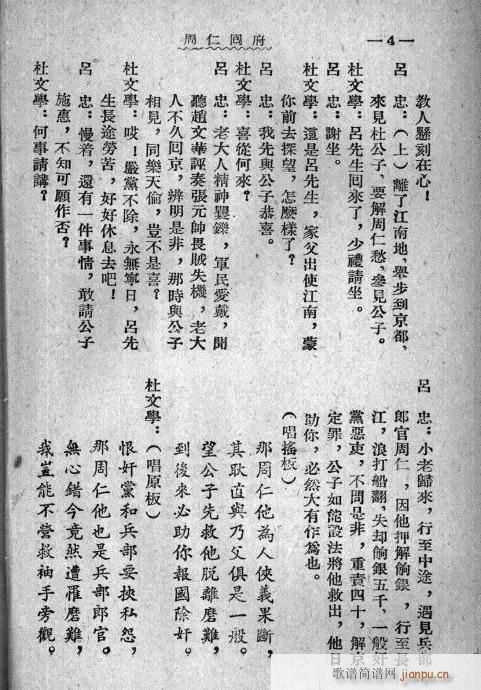 府囘仁周
—4—
教人懸刻在心！
呂　忠：（上）離了江南地，舉步到京都，
來見杜公子，要解周仁愁，參見公子。
杜文學：呂先生回來了，少禮請坐。
呂　忠：謝坐。
杜文學：這是呂先生，家父出使江南，蒙
你前去探望，怎麼樣了？
呂　忠：我先與公子恭喜。
杜文學：喜從何來？
呂　忠：老大人精神矍鑠，軍民愛戴，聞
聽趙文華誣奏張元帥畏賊失機，老大
人不久回京，辨明是非，那時與公子
相見，同樂天倫，豈不是喜？
杜文學：哎！嚴黨不除，永無寧日，呂先
生長途勞苦，好好休息去吧！
呂　忠：慢着，還有一件事情，敢請公子
施惠，不知可願作否？
杜文學：何事請講？
呂　忠：小老歸來，行至中途，遇見兵部
郎官周仁，因他押解餉銀，行至長
江，浪打船翻，失却餉銀五千，一般奸
黨惡吏，不問是非，重責四十，解京
定罪，公子如能設法將他救出，他日
助你，必然大有作爲也。
（唱搖板）
那周仁他為人俠義果斷，
其耿直與乃父俱是一般。
望公子先救他脱離磨難，
到後來必助你報國除奸。
杜文學：（唱原板）
恨奸黨和兵部要挾私怨，
那周仁他也是兵部郎官。
無心錯今竟然遭罹磨難，
我豈能不營救袖手旁觀。
歌谱简谱网
jianpu.cn